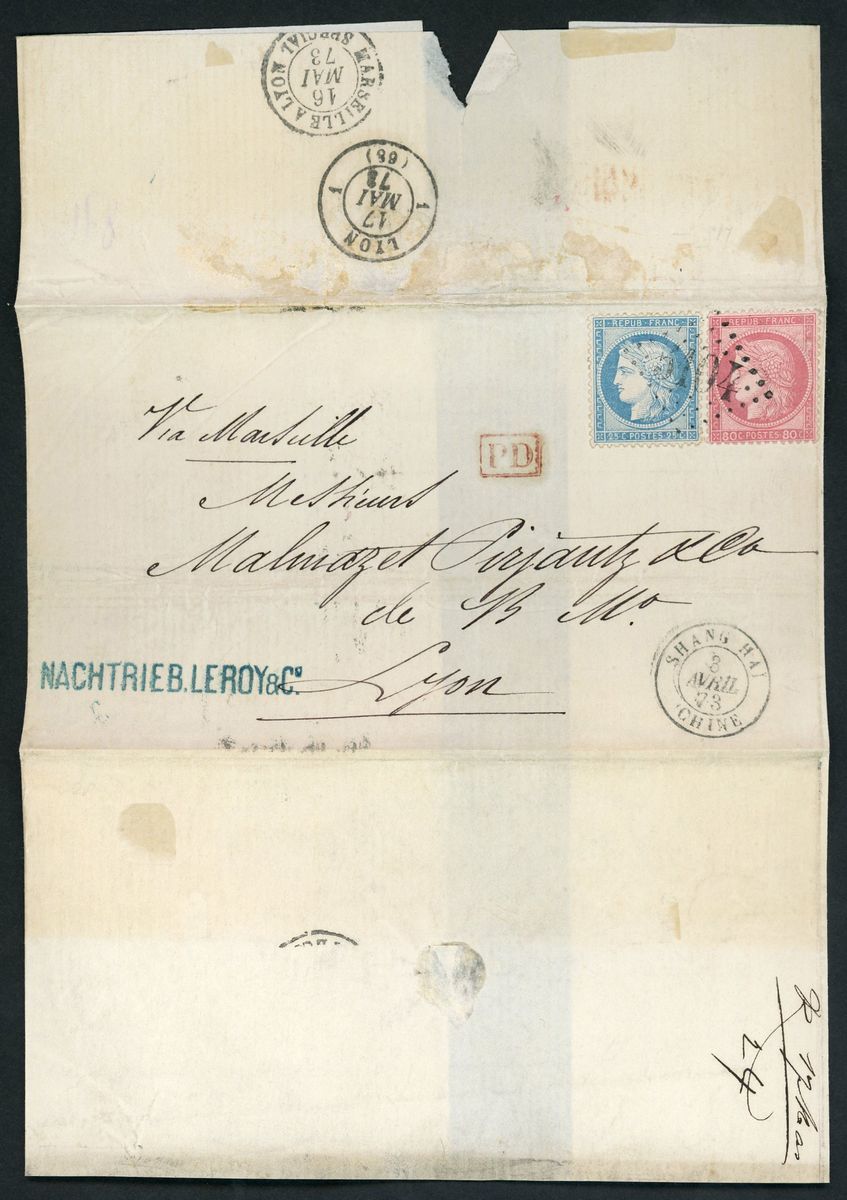 MARSEILLE A LYON SPECIAL
16
MAI
73
LYON
1 1
17
MAI
73
(68)
REPUB·FRANC·
25 C·POSTES·25 C
REPUB·FRANC·
80 C·POSTES·80 C
5104
Via Marseille
PD
Messieurs
Malmazet Pirjantz & Co
de R Mo
Lyon
NACHTRIEB.LEROY&Co.
SHANG HAI
3
AVRIL
73
CHINE
24